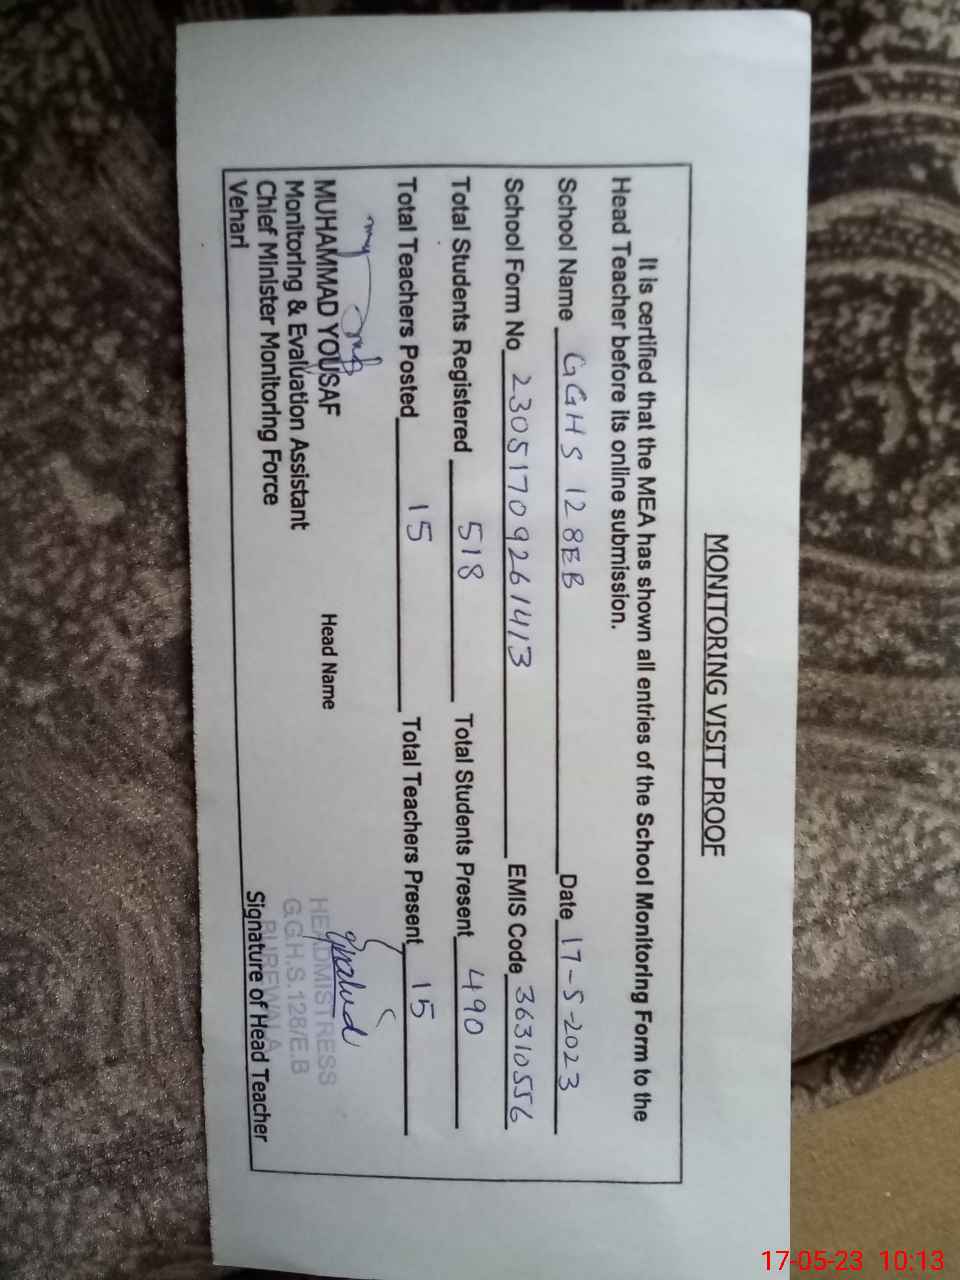 MONITORING VISIT PROOF
It is certified that the MEA has shown all entries of the School Monitoring Form to the
Head Teacher before its online submission.
School Name GGHS 128EB Date 17-5-2023
School Form No 23051709261413 EMIS Code 36310556
Total Students Registered 518 Total Students Present 490
Total Teachers Posted 15 Total Teachers Present 15
MUHAMMAD YOUSAF Head Name
Monitoring & Evaluation Assistant
Chief Minister Monitoring Force
Vehari
HEADMISTRESS
G.G.H.S. 128/E.B
BUREWALA
Signature of Head Teacher
17-05-23 10:13